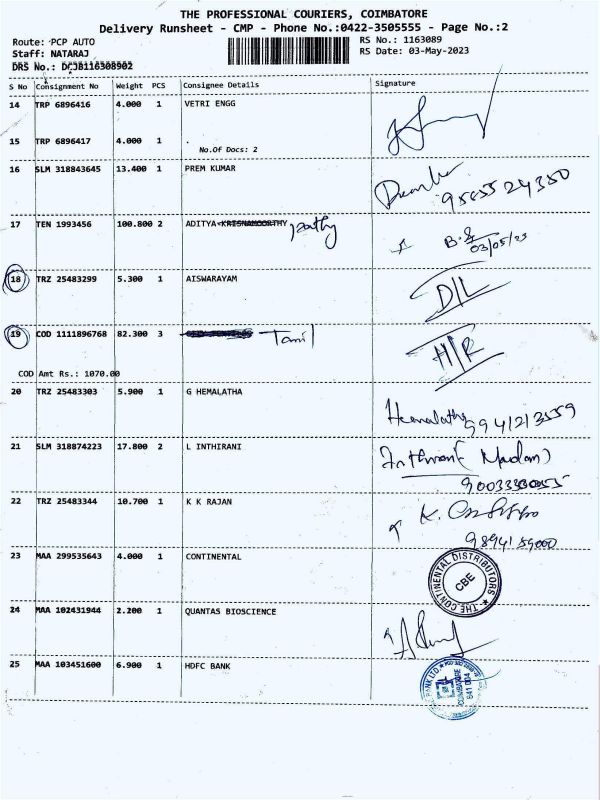 THE PROFESSIONAL COURIERS, COIMBATORE
Delivery Runsheet - CMP - Phone No.:0422-3505555 - Page No.:2
Route: PCP AUTO
RS No.: 1163089
Staff: NATARAJ
RS Date: 03-May-2023
DRS No.: DCJB116308902
S No Consignment No Weight PCS Consignee Details Signature
14 TRP 6896416 4.000 1 VETRI ENGG
15 TRP 6896417 4.000 1 .
No.Of Docs: 2
16 SLM 318843645 13.400 1 PREM KUMAR
9585524350
17 TEN 1993456 100.800 2 ADITYA KRISNAMOORTHY
03/05/23
18 TRZ 25483299 5.300 1 AISWARAYAM D/L
19 COD 1111896768 82.300 3 Tamil H/R
COD Amt Rs.: 1070.00
20 TRZ 25483303 5.900 1 G HEMALATHA
Hemalatha 9941213559
21 SLM 318874223 17.800 2 L INTHIRANI
(Madam)
22 TRZ 25483344 10.700 1 K K RAJAN
K.
9894189000
23 MAA 299535643 4.000 1 CONTINENTAL
THE CONTINENTAL DISTRIBUTORS
CBE
24 MAA 102431944 2.200 1 QUANTAS BIOSCIENCE
25 MAA 103451600 6.900 1 HDFC BANK
BANK LTD.
COIMBATORE
641 004